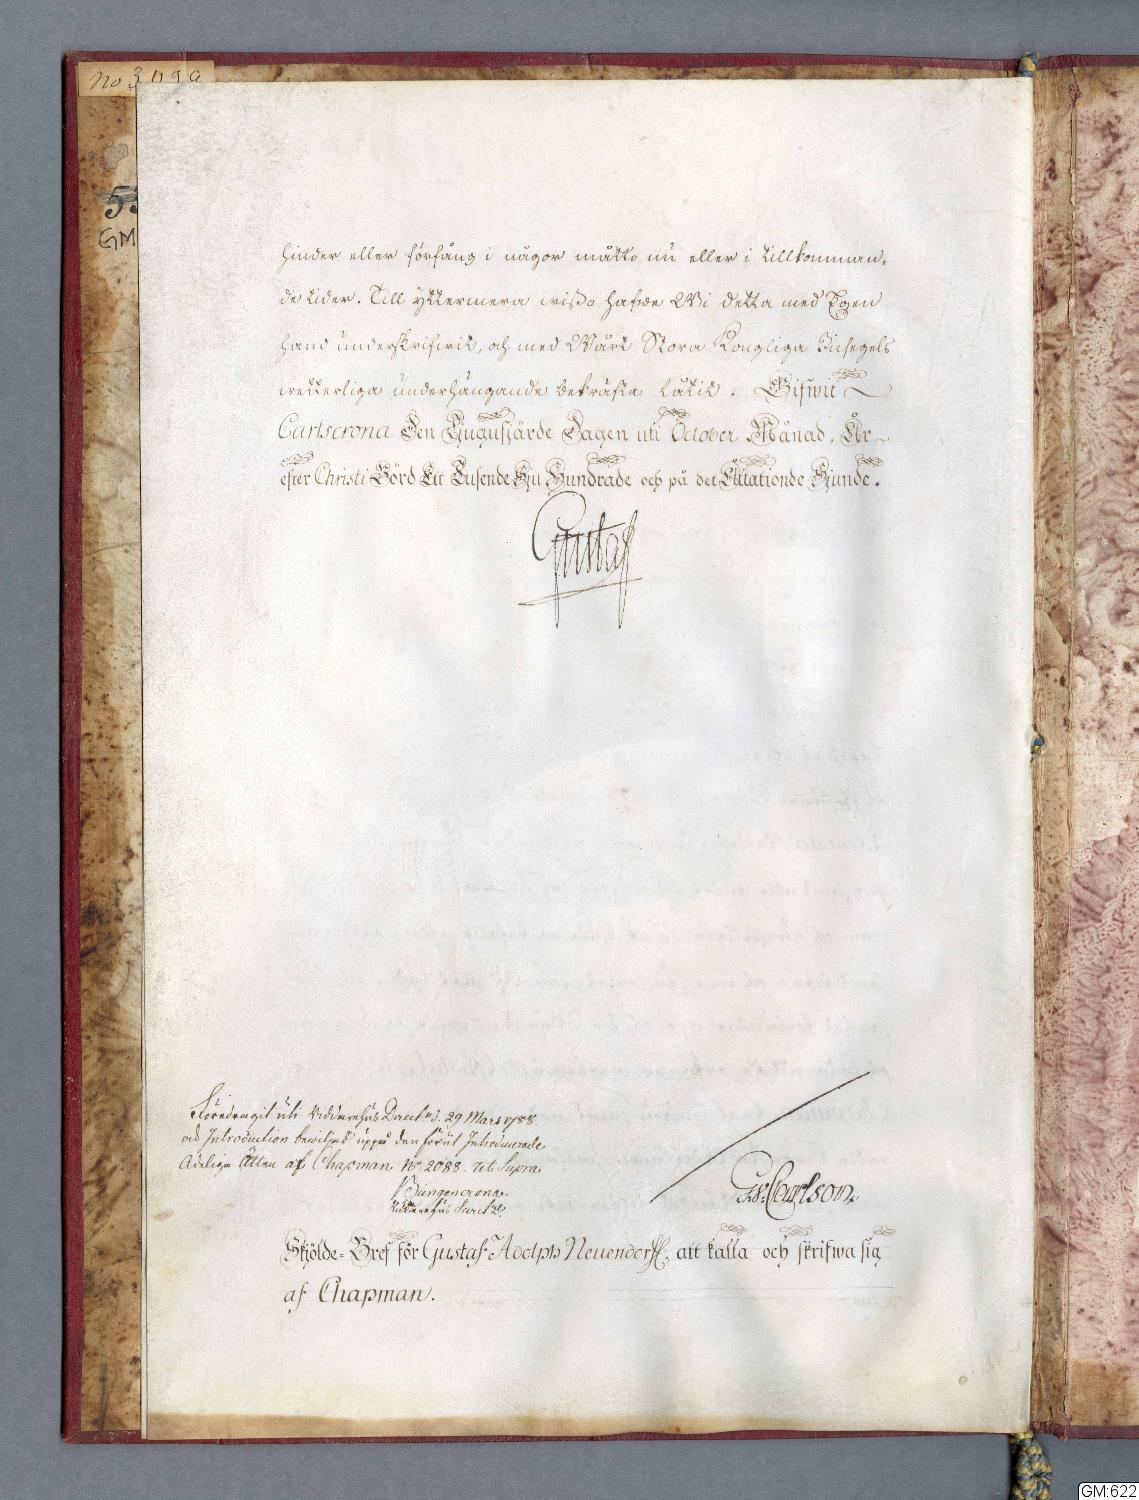 No 3499
55
GM
hinder eller förfång i någor måtto nu eller i tillkomman,
de tider. Till yttermera wisso hafwe Wi detta med Egen
hand underskrifwit, och med Wårt Stora Kongliga Insegels
wetterliga underhängande bekräfta låtit. Gifwit
Carlscrona Den Tjugufjärde Dagen uti October Månad, År
efter Christi Börd Ett Tusende Sju Hundrade och på det Åttationde Sjunde.
Gustaf
Föredragit uti Riddarehus 29 Mars 1788.
vid Introduction beviljad uppå den förut Introducerade
Adeliga Ätten af Chapman No 2088. Ut Supra
Bungencrona.
Riddarehus Secret.
Carlson.
Skjölde-Bref för Gustaf Adolph Neuendorff, att kalla och skrifwa sig
af Chapman.
GM:622